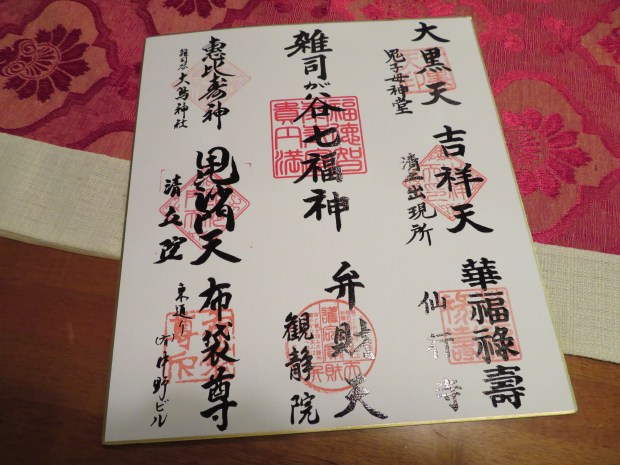 大黒天
鬼子母神堂
吉祥天
清土出現所
華福禄壽
仙行寺
雑司が谷七福神
福徳智
貴円満
弁財天
観静院
恵比寿神
雑司谷大鳥神社
毘沙門天
清立院
布袋尊
東通り
(有)中野ビル